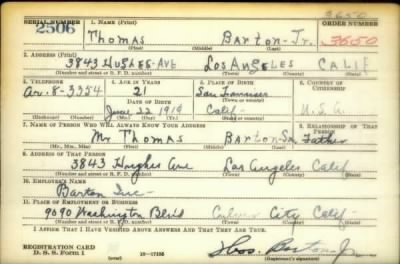 SERIAL NUMBER 1. NAME (Print) ORDER NUMBER
3650
2506 Thomas Barton Jr. 3650
(First) (Middle) (Last)
2. ADDRESS (Print)
3843 Hughes-Ave Los Angeles Calif
(Number and street or R. F. D. number) (Town) (County) (State)
3. TELEPHONE 4. AGE IN YEARS 5. PLACE OF BIRTH 6. COUNTRY OF CITIZENSHIP
Ar. 8-3354 21
DATE OF BIRTH (Town or county)
June 22 1919 Calif- U.S.A.
(Exchange) (No.) (Mo.) (Day) (Yr.) (State or country)
7. NAME OF PERSON WHO WILL ALWAYS KNOW YOUR ADDRESS 8. RELATIONSHIP OF THAT PERSON
Mr Thomas Barton Sr. Father
(Mr., Mrs., Miss) (First) (Middle) (Last)
9. ADDRESS OF THAT PERSON
3843 Hughes Ave Los Angeles Calif
(Number and street or R. F. D. number) (Town) (County) (State)
10. EMPLOYER'S NAME
Barton Inc-
11. PLACE OF EMPLOYMENT OR BUSINESS
9090 Washington Blvd Culver City Calif-
(Number and street or R. F. D. number) (Town) (County) (State)
I AFFIRM THAT I HAVE VERIFIED ABOVE ANSWERS AND THAT THEY ARE TRUE.
REGISTRATION CARD
D. S. S. Form 1 16-17105 Thos. Barton Jr
(Registrant's signature)